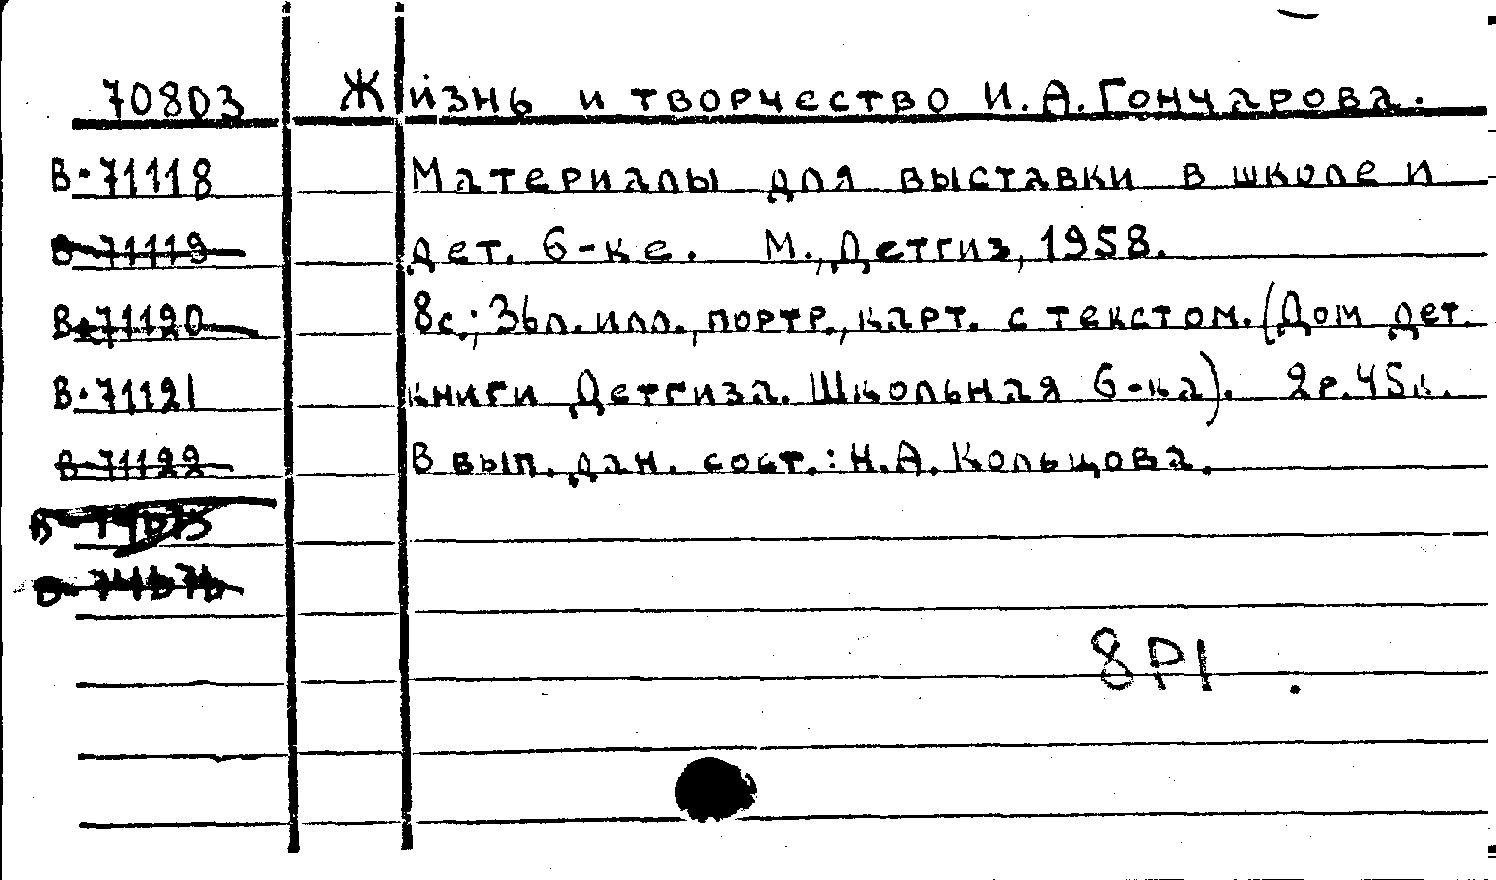 70803 Жизнь и творчество И.А.Гончарова.
В-71118 Материалы для выставки в школе и
В-71119 дет. б-ке. М., Детгиз, 1958.
В-71120 8с.; 36л. илл., портр., карт. с текстом. (Дом дет.
В-71121 книги Детгиза. Школьная б-ка). 2р.45к.
В-71122 В вып. дан. сост.: Н.А. Кольцова.
8Р1.